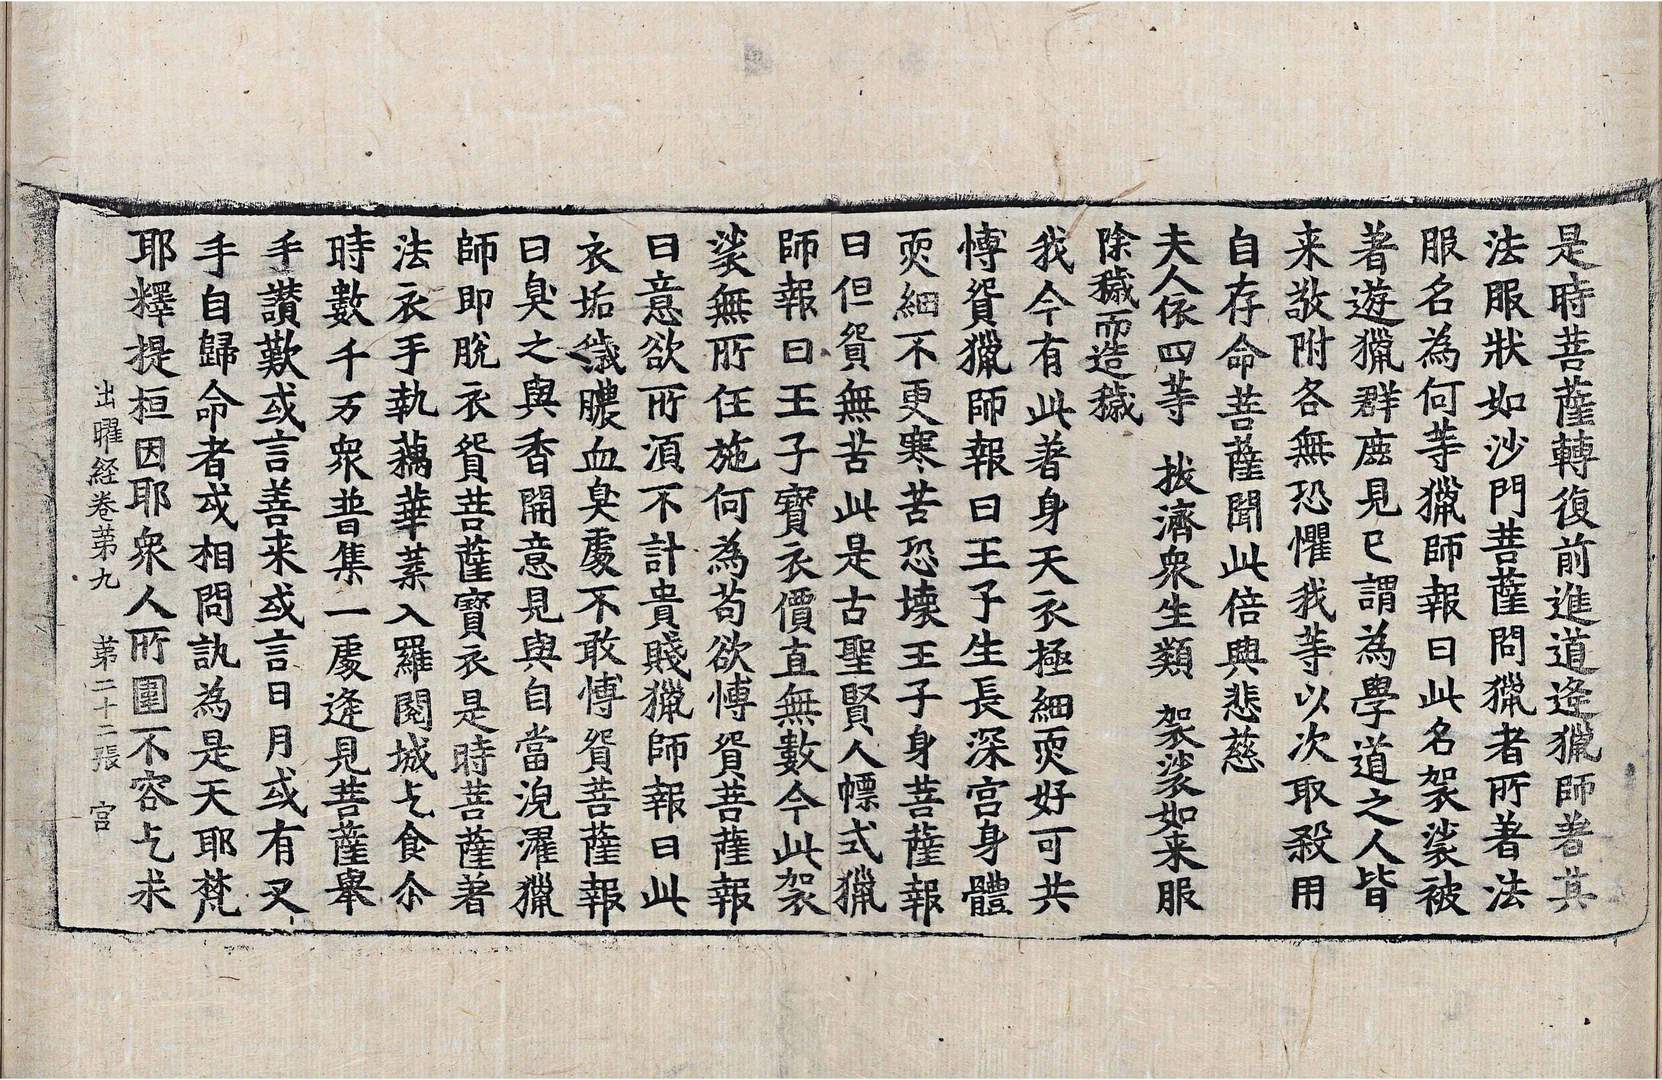 是時菩薩轉復前進道逢獵師著其
法服狀如沙門菩薩問獵者所著法
服名為何等獵師報曰此名袈裟被
著遊獵群鹿見已謂為學道之人皆
来敬附各無恐懼我等以次取殺用
自存命菩薩聞此倍興悲慈
夫人依四等　拔濟衆生類　袈裟如来服
除穢而造穢
我今有此著身天衣極細耎好可共
愽貿獵師報曰王子生長深宮身體
耎細不更寒苦恐壊王子身菩薩報
曰但貿無苦此是古聖賢人幖式獵
師報曰王子寳衣價直無數今此袈
裟無所任施何為苟欲愽貿菩薩報
曰意欲所湏不計貴賤獵師報曰此
衣垢穢膿血臭處不敢愽貿菩薩報
曰臭之與香開意見與自當浣濯獵
師即脫衣貿菩薩寳衣是時菩薩著
法衣手執藕華葉入羅閱城乞食尒
時數千万衆普集一處逢見菩薩舉
手讃歎或言善来或言日月或有叉
手自歸命者或相問訊為是天耶梵
耶釋提桓因耶衆人所圍不容乞求
出曜経卷第九　第二十二張　宮